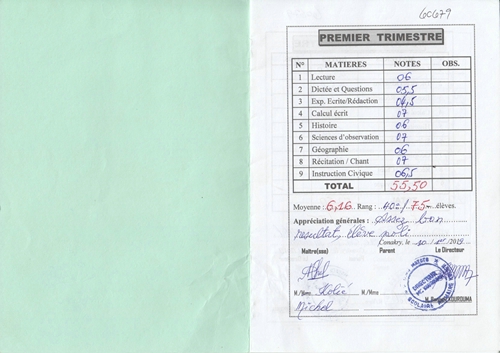 GC679
PREMIER TRIMESTRE
N° MATIERES NOTES OBS.
1 Lecture 06
2 Dictée et Questions 05,5
3 Exp. Ecrite/Rédaction 04,5
4 Calcul écrit 07
5 Histoire 06
6 Sciences d'observation 07
7 Géographie 06
8 Récitation / Chant 07
9 Instruction Civique 06,5
TOTAL 55,50
Moyenne : 6,16 Rang : 40e/75 élèves.
Appréciation générales : Assez bon
resultat, élève poli
Conakry, le 10 / 2019
Maître(sse) Parent Le Directeur
M./Mme Kolié M./Mme M. KOUROUMA
Michel